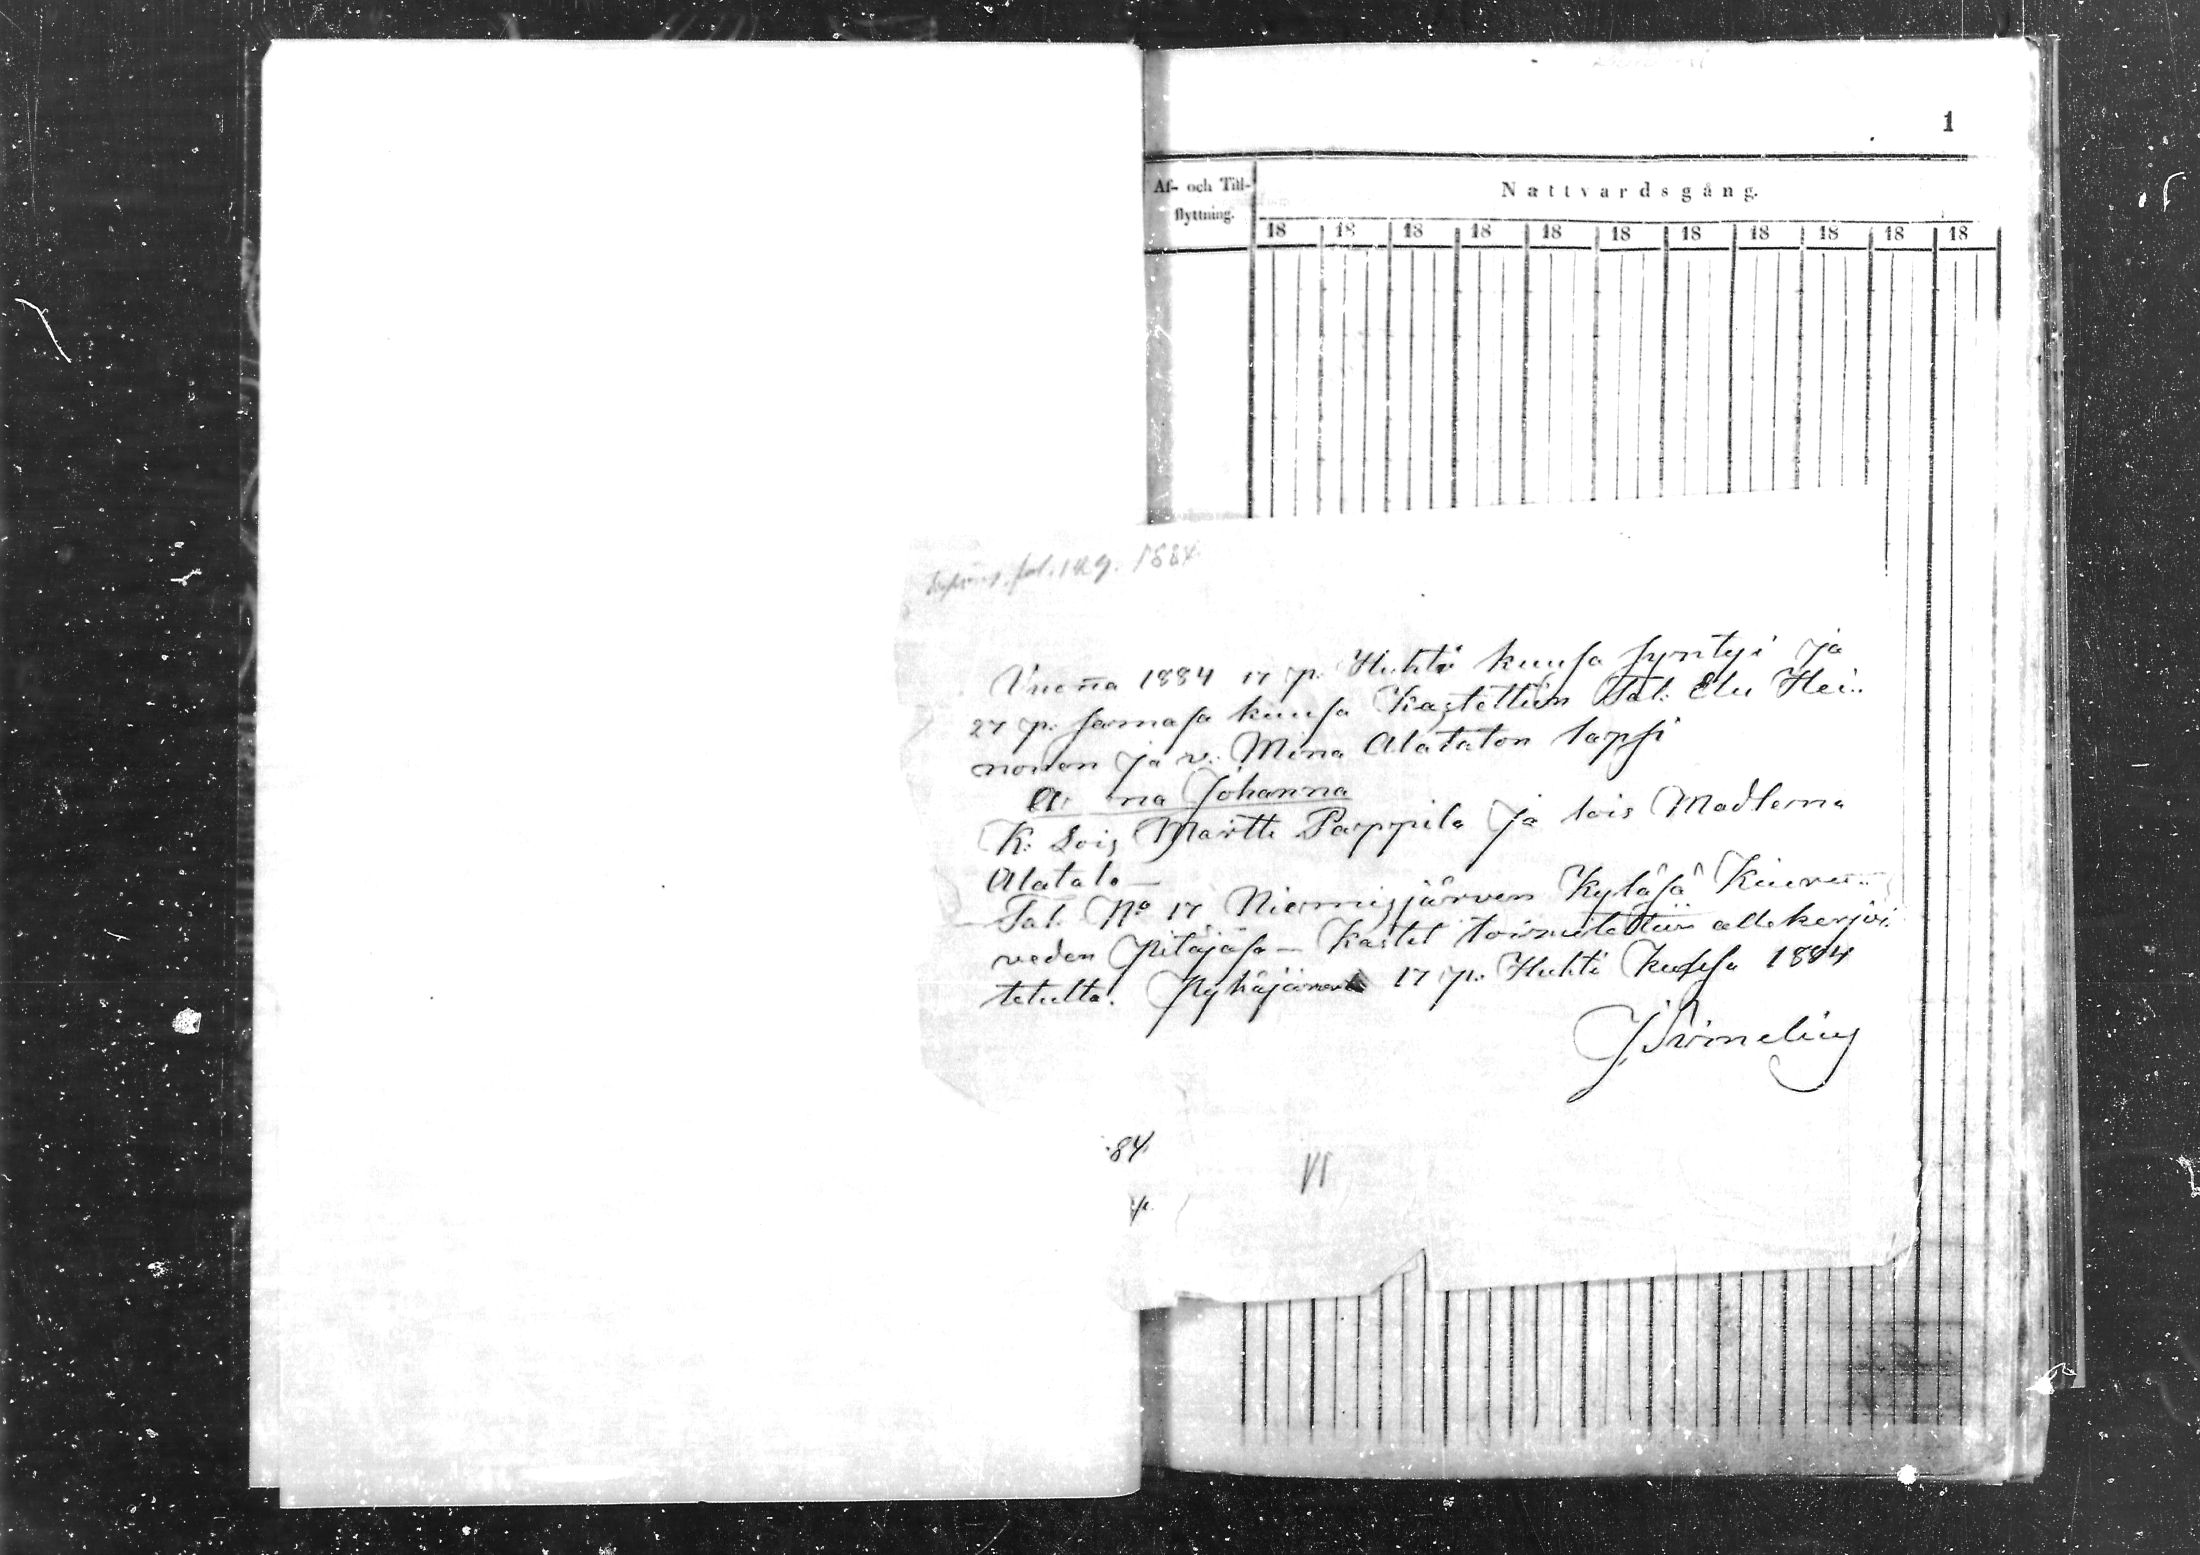 1
Af- och Till-
flyttning.
Nattvardsgång.
18 18 18 18 18 18 18 18 18 18 18
fol. 129. 1884
Vuonna 1884 17 p. Huhti kuusa syntyi ja
27 p. samasa kuusa Kastettiin Tal. Elu Hei-
nonen ja v. Mina Alatalon lapsi
na Johanna
K: Lois Martti Parppila ja lois Madlena
Alatalo —
Tal. No 17 Niemisjärven Kyläsä Kiuru-
veden pitäjäsä — Kastet toimitettiin allekirjoi-
tetulta. Pyhäjärvi 17 p. Huhti Kuusa 1884
84
p.
VI